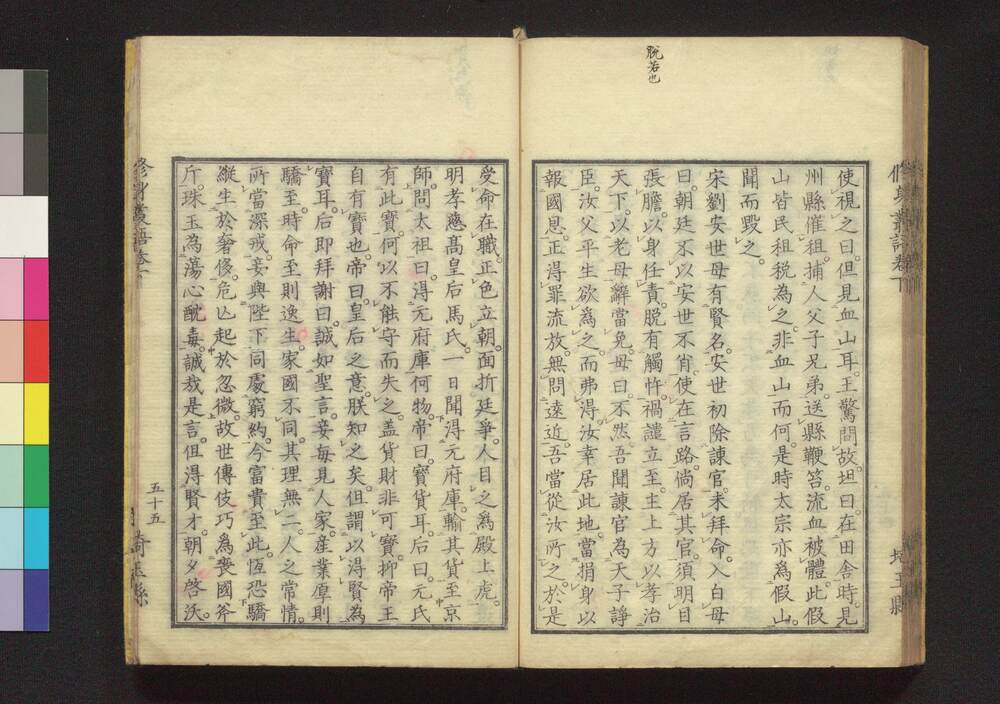 脫若也
使視之曰。但見血山耳。王驚問故。坦曰。在田舍時。見
州縣催租。捕人父子兄弟。送縣鞭笞。流血被體。此假
山皆民租稅為之。非血山而何。是時太宗亦為假山。
聞而毀之。
宋劉安世母有賢名。安世初除諫官。未拜命。入白母
曰。朝廷不以安世不肖。使在言路。倘居其官。須明目
張膽。以身任責。脫有觸忤。禍譴立至。主上方以孝治
天下。以老母辭當免。母曰。不然。吾聞諫官為天子諍
臣。汝父平生欲為之。而弗得。汝幸居此地。當捐身以
報國恩。正得罪流放。無問遠近。吾當從汝所之。於是
受命在職。正色立朝。面折廷爭。人目之為殿上虎。
明孝慈高皇后馬氏。一日聞得元府庫。輸其貨至京
師。問太祖曰。得元府庫何物。帝曰。寶貨耳。后曰。元氏
有此寶。何以不能守而失之。蓋貨財非可寶。抑帝王
自有寶也。帝曰。皇后之意。朕知之矣。但謂以得賢為
寶耳。后即拜謝曰。誠如聖言。妾每見人家。產業厚則
驕至。時命至則逸生。家國不同。其理無二。人之常情。
所當深戒。妾與陛下同處窮約。今富貴至此。恆恐驕
縱生於奢侈。危亡起於忽微。故世傳伎巧為喪國斧
斤。珠玉為蕩心酖毒。誠哉是言。但得賢才。朝夕啓沃。
五十五